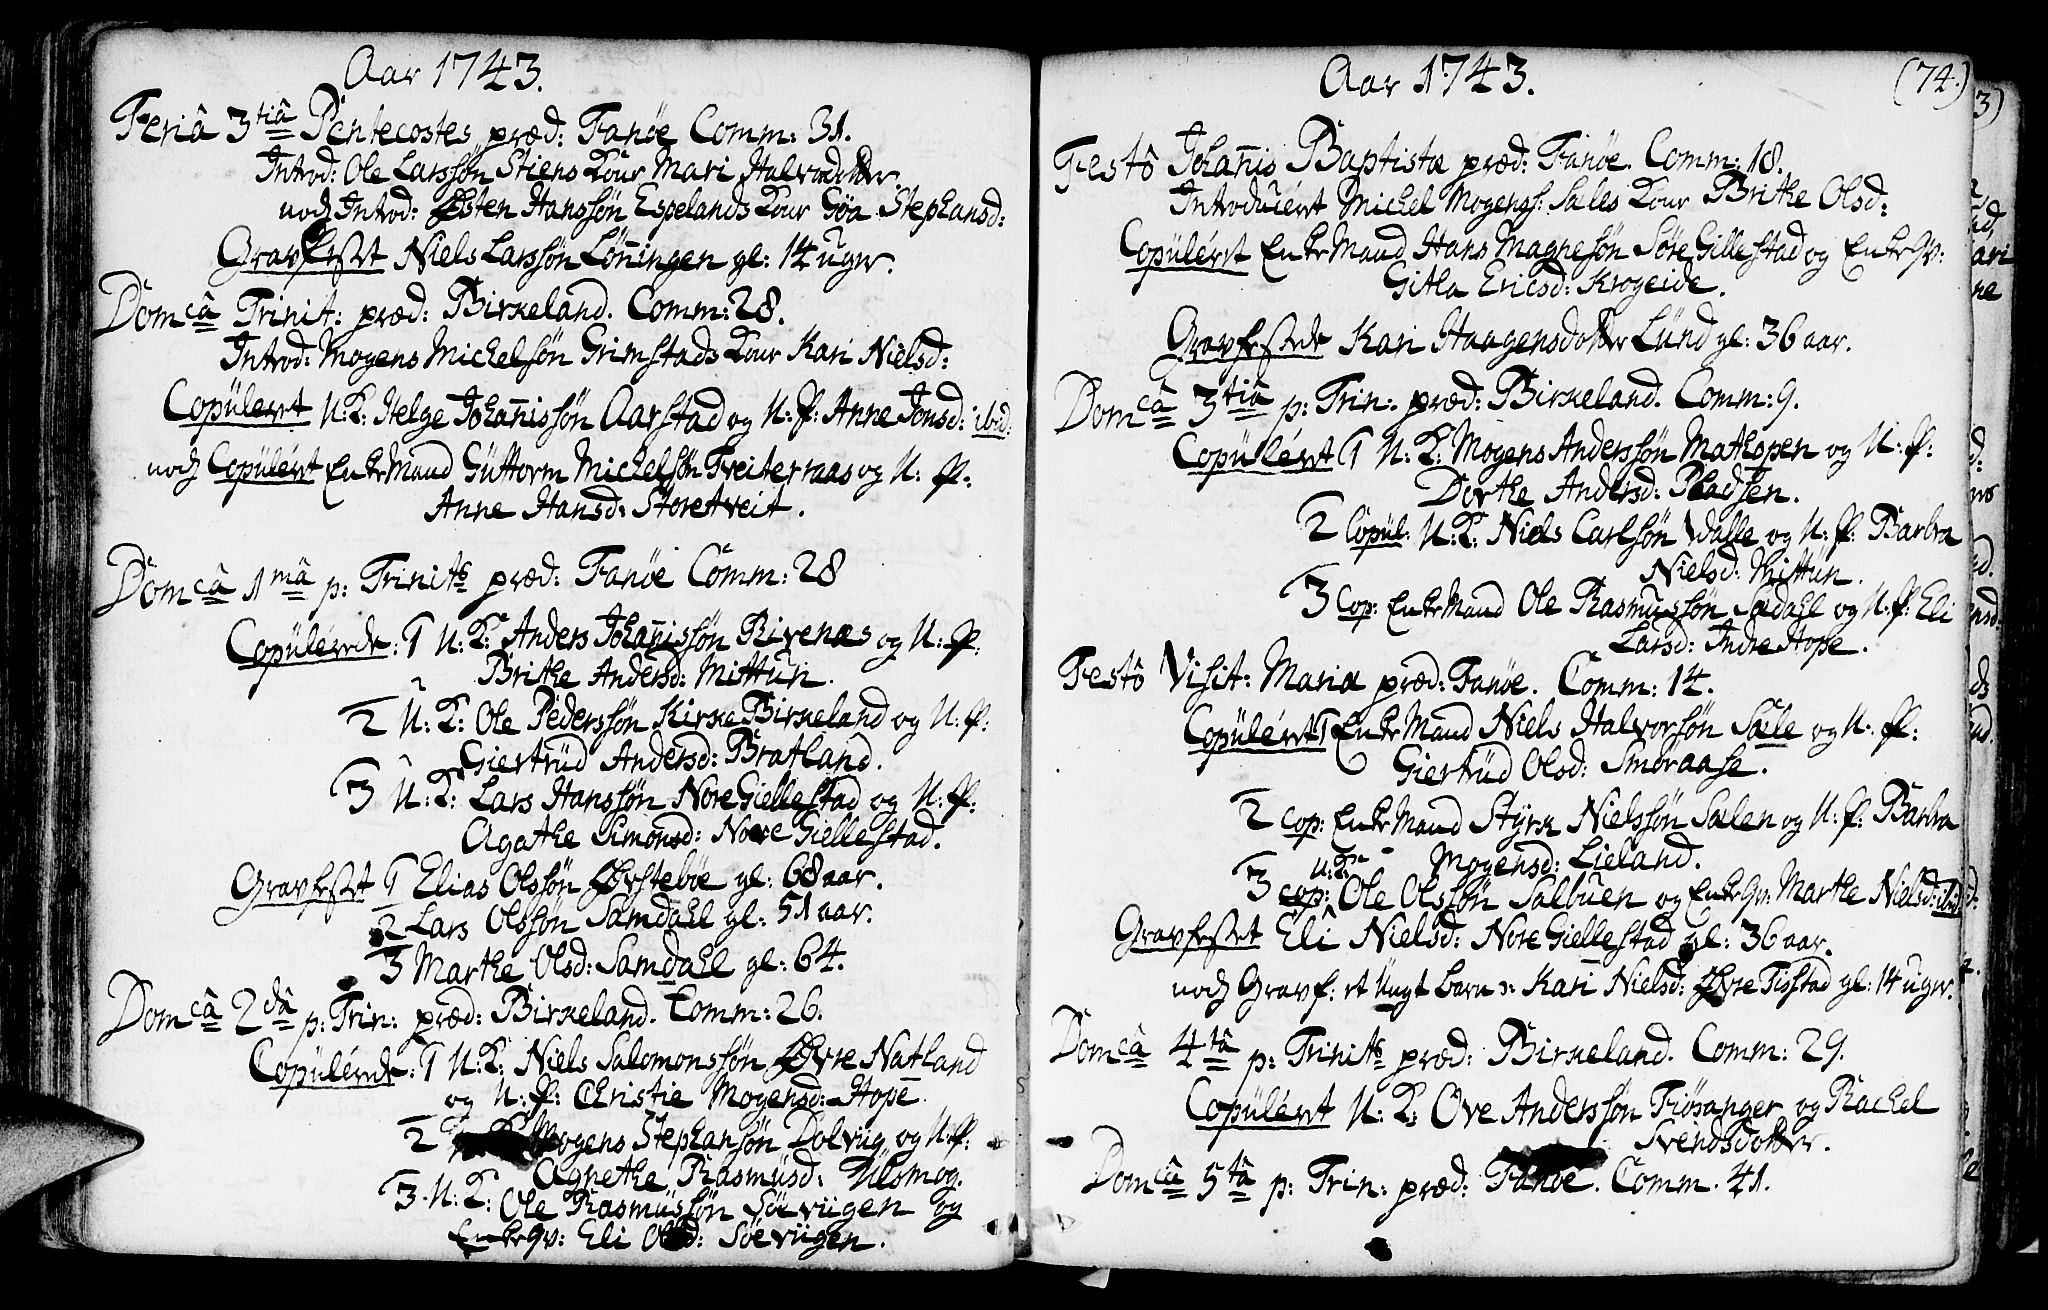 Aar 1743.
Feriâ 3tiâ Pentecostes præd: Fanöe Comm: 31.
Introd: Ole Larssøn Stiens Kone Mari Halvorsdotter.
noch Introd: Østen Hanssøn Espelands Kone Göa Stephansd:
Gravfestet Niels Larssøn Løñingen gl: 14 uger.
Domcâ Trinit: præd: Birkeland. Comm: 28.
Introd: Mogens Michelsøn Grimstads Kone Kari Nielsd:
Copüleret U: K: Helge Johañissøn Aarstad og U: P: Anne Jonsd: ibid:
noch Copülérét Enke Mand Güttorm Michelsøn Tveiterraas og U: P:
Anne Hansd: Storetveit.
Domcâ 1mâ p: Trinits præd: Fanöe Comm: 28
Copülérede: 1 U: K: Anders Johañissøn Rivenæs og U: P:
Brithe Andersd: Mittün.
2 U: K: Ole Pederssøn Kirke Birkeland og U: P:
Giertrüd Andersd: Bratland.
3 U: K: Lars Hanssøn Nore Giellestad og U: P:
Agathe Simonsd: Nore Giellestad.
Gravfestet 1 Elias Olssøn Øvstebøe gl: 68 aar.
2 Lars Olssøn Samdahl gl: 51 aar.
3 Marthe Olsd: Samdahl gl: 64.
Domcâ 2dâ p: Trin: præd: Birkeland. Comm: 26.
Copülérede: 1 U: K: Niels Salomonssøn Øvre Natland
og U: P: Christie Mogensd: Hope.
2 Mogens Stephansøn Dolviig og U: P:
Agnethe Rasmüsd: Ülsmog.
3. U: K: Ole Rasmüssøn Söeviigen og
Enkeqv: Eli Olsd: Söeviigen.
Aar 1743.
(74.)
Festô Johañis Baptistæ præd: Fanöe. Comm: 18.
Introdücéret Michel Mogens: Sæles Kone Brithe Olsd:
Copülérét Enke Mand Hans Magnesøn Søre Gillestad og Enkeqv:
Gitla Ericsd: Krogeide.
Gravfestede Kari Haagensdotter Lünd gl: 36 aar.
Domcâ 3tiâ p: Trin: præd: Birkeland. Comm: 9.
Copülérét 1 U: K: Mogens Anderssøn Mathopen og U: P:
Dorthe Andersd: Pladsen.
2 Copül. U: K: Niels Carlsøn Valle og U: P: Barbra
Nielsd: Mittün.
3 Cop: Enke Mand Ole Rasmüssøn Sædahl og U: P: Eli
Larsd: Indre Hope.
Festô Visit: Mariæ præd: Fanöe. Comm: 14.
Copülérét 1 Enke Mand Niels Halvorsøn Sæle og U: P:
Giertrüd Olsd: Smøraase.
2 cop: Enke Mand Styrk Nielssøn Sælen og U: P: Barbra
Mogensd: Lieland.
U: K:
3 cop: Ole Olssøn Sælbüen og Enkeqv: Marthe Nielsd: ibid:
Gravfestet Eli Nielsd: Nore Giellestad gl: 36 aar.
noch Gravf: et Ungt barn n: Kari Nielsd: Øvre Titlstad gl: 14 uger.
Domcâ 4tâ p: Trinits præd: Birkeland. Comm: 29.
Copülérét U: K: Ove Anderssøn Fiøsanger og Rachel
Svendsdotter.
Domcâ 5tâ p: Trin: præd: Fanöe. Comm. 41.